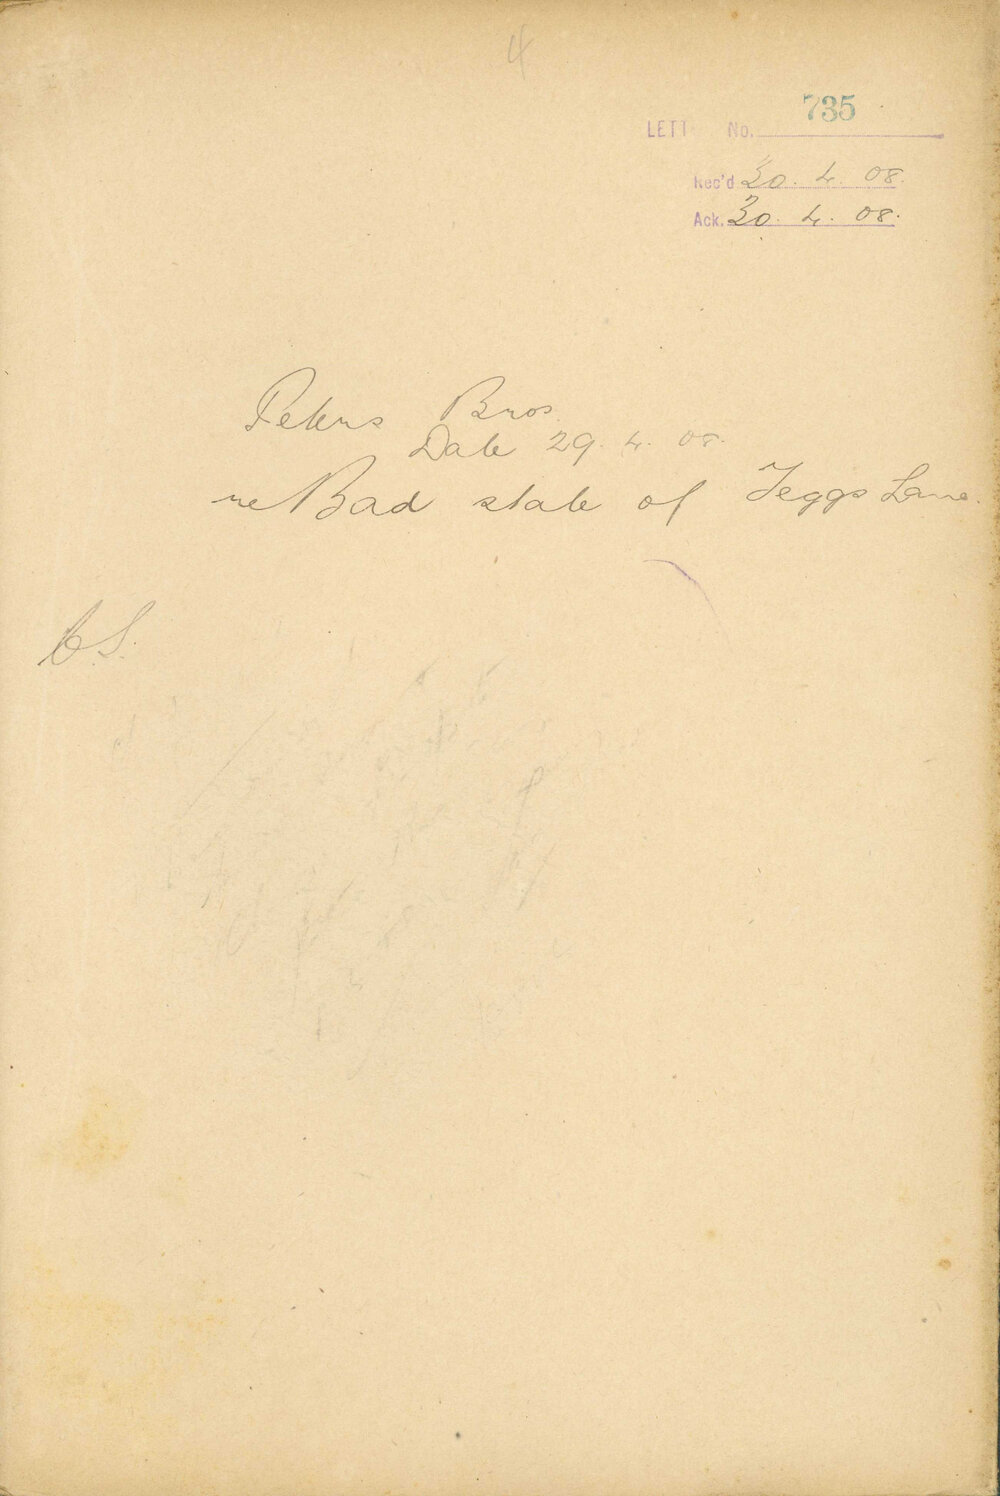 4
LETT No. 735
Rec'd 30. 4. 08.
Ack. 30. 4. 08.
Peters Bros.
Date 29. 4. 08.
re Bad state of Teggs Lane.
C.S.